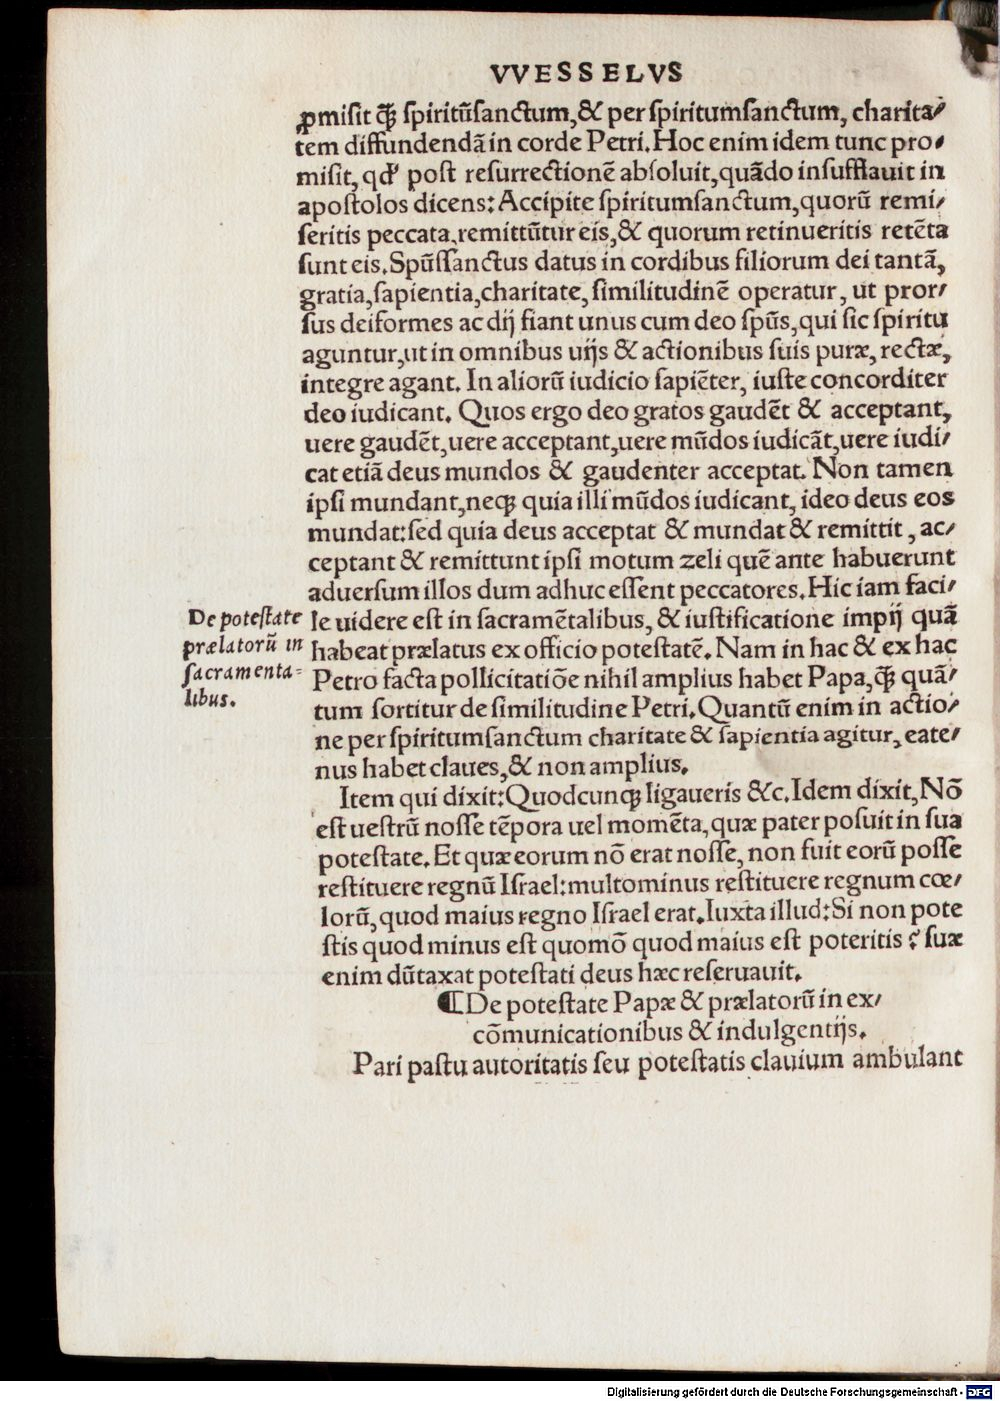 VVESSELVS
ꝓmisit ꝙ̃ spiritũsanctum,& per spiritumsanctum, charita/
tem diffundendã in corde Petri. Hoc enim idem tunc pro/
misit, qđ post resurrectionẽ absoluit, quãdo insufflauit in
apostolos dicens: Accipite spiritumsanctum, quorũ remi/
seritis peccata, remittũtur eis,& quorum retinueritis retẽta
sunt eis. Spũssanctus datus in cordibus filiorum dei tantã,
gratia, sapientia, charitate, similitudinẽ operatur, ut pror/
sus deiformes ac dij fiant unus cum deo spũs, qui sic spiritu
aguntur, ut in omnibus uijs & actionibus suis puræ, rectæ,
integre agant. In aliorũ iudicio sapiẽter, iuste concorditer
deo iudicant. Quos ergo deo gratos gaudẽt & acceptant,
uere gaudẽt, uere acceptant, uere mũdos iudicãt, uere iudi/
cat etiã deus mundos & gaudenter acceptat. Non tamen
ipsi mundant, neqꝫ quia illi mũdos iudicant, ideo deus eos
mundat: sed quia deus acceptat & mundat & remittit, ac/
ceptant & remittunt ipsi motum zeli quẽ ante habuerunt
aduersum illos dum adhuc essent peccatores. Hic iam faci/
De potestate
prælatorũ in
sacramenta=
libus.
le uidere est in sacramẽtalibus, & iustificatione impij quã
habeat prælatus ex officio potestatẽ. Nam in hac & ex hac
Petro facta pollicitatiõe nihil amplius habet Papa, ꝙ̃ quã/
tum sortitur de similitudine Petri. Quantũ enim in actio/
ne per spiritumsanctum charitate & sapientia agitur, eate/
nus habet claues, & non amplius.
Item qui dixit: Quodcunqꝫ ligaueris &c. Idem dixit, Nõ
est uestrũ nosse tẽpora uel momẽta, quæ pater posuit in sua
potestate. Et quæ eorum nõ erat nosse, non fuit eorũ posse
restituere regnũ Israel: multominus restituere regnum cœ/
lorũ, quod maius regno Israel erat. Iuxta illud: Si non pote
stis quod minus est quomõ quod maius est poteritis? suæ
enim dũtaxat potestati deus hæc reseruauit.
¶ De potestate Papæ & prælatorũ in ex/
cõmunicationibus & indulgentijs.
Pari passu autoritatis seu potestatis clauium ambulant
Digitalisierung gefördert durch die Deutsche Forschungsgemeinschaft - DFG